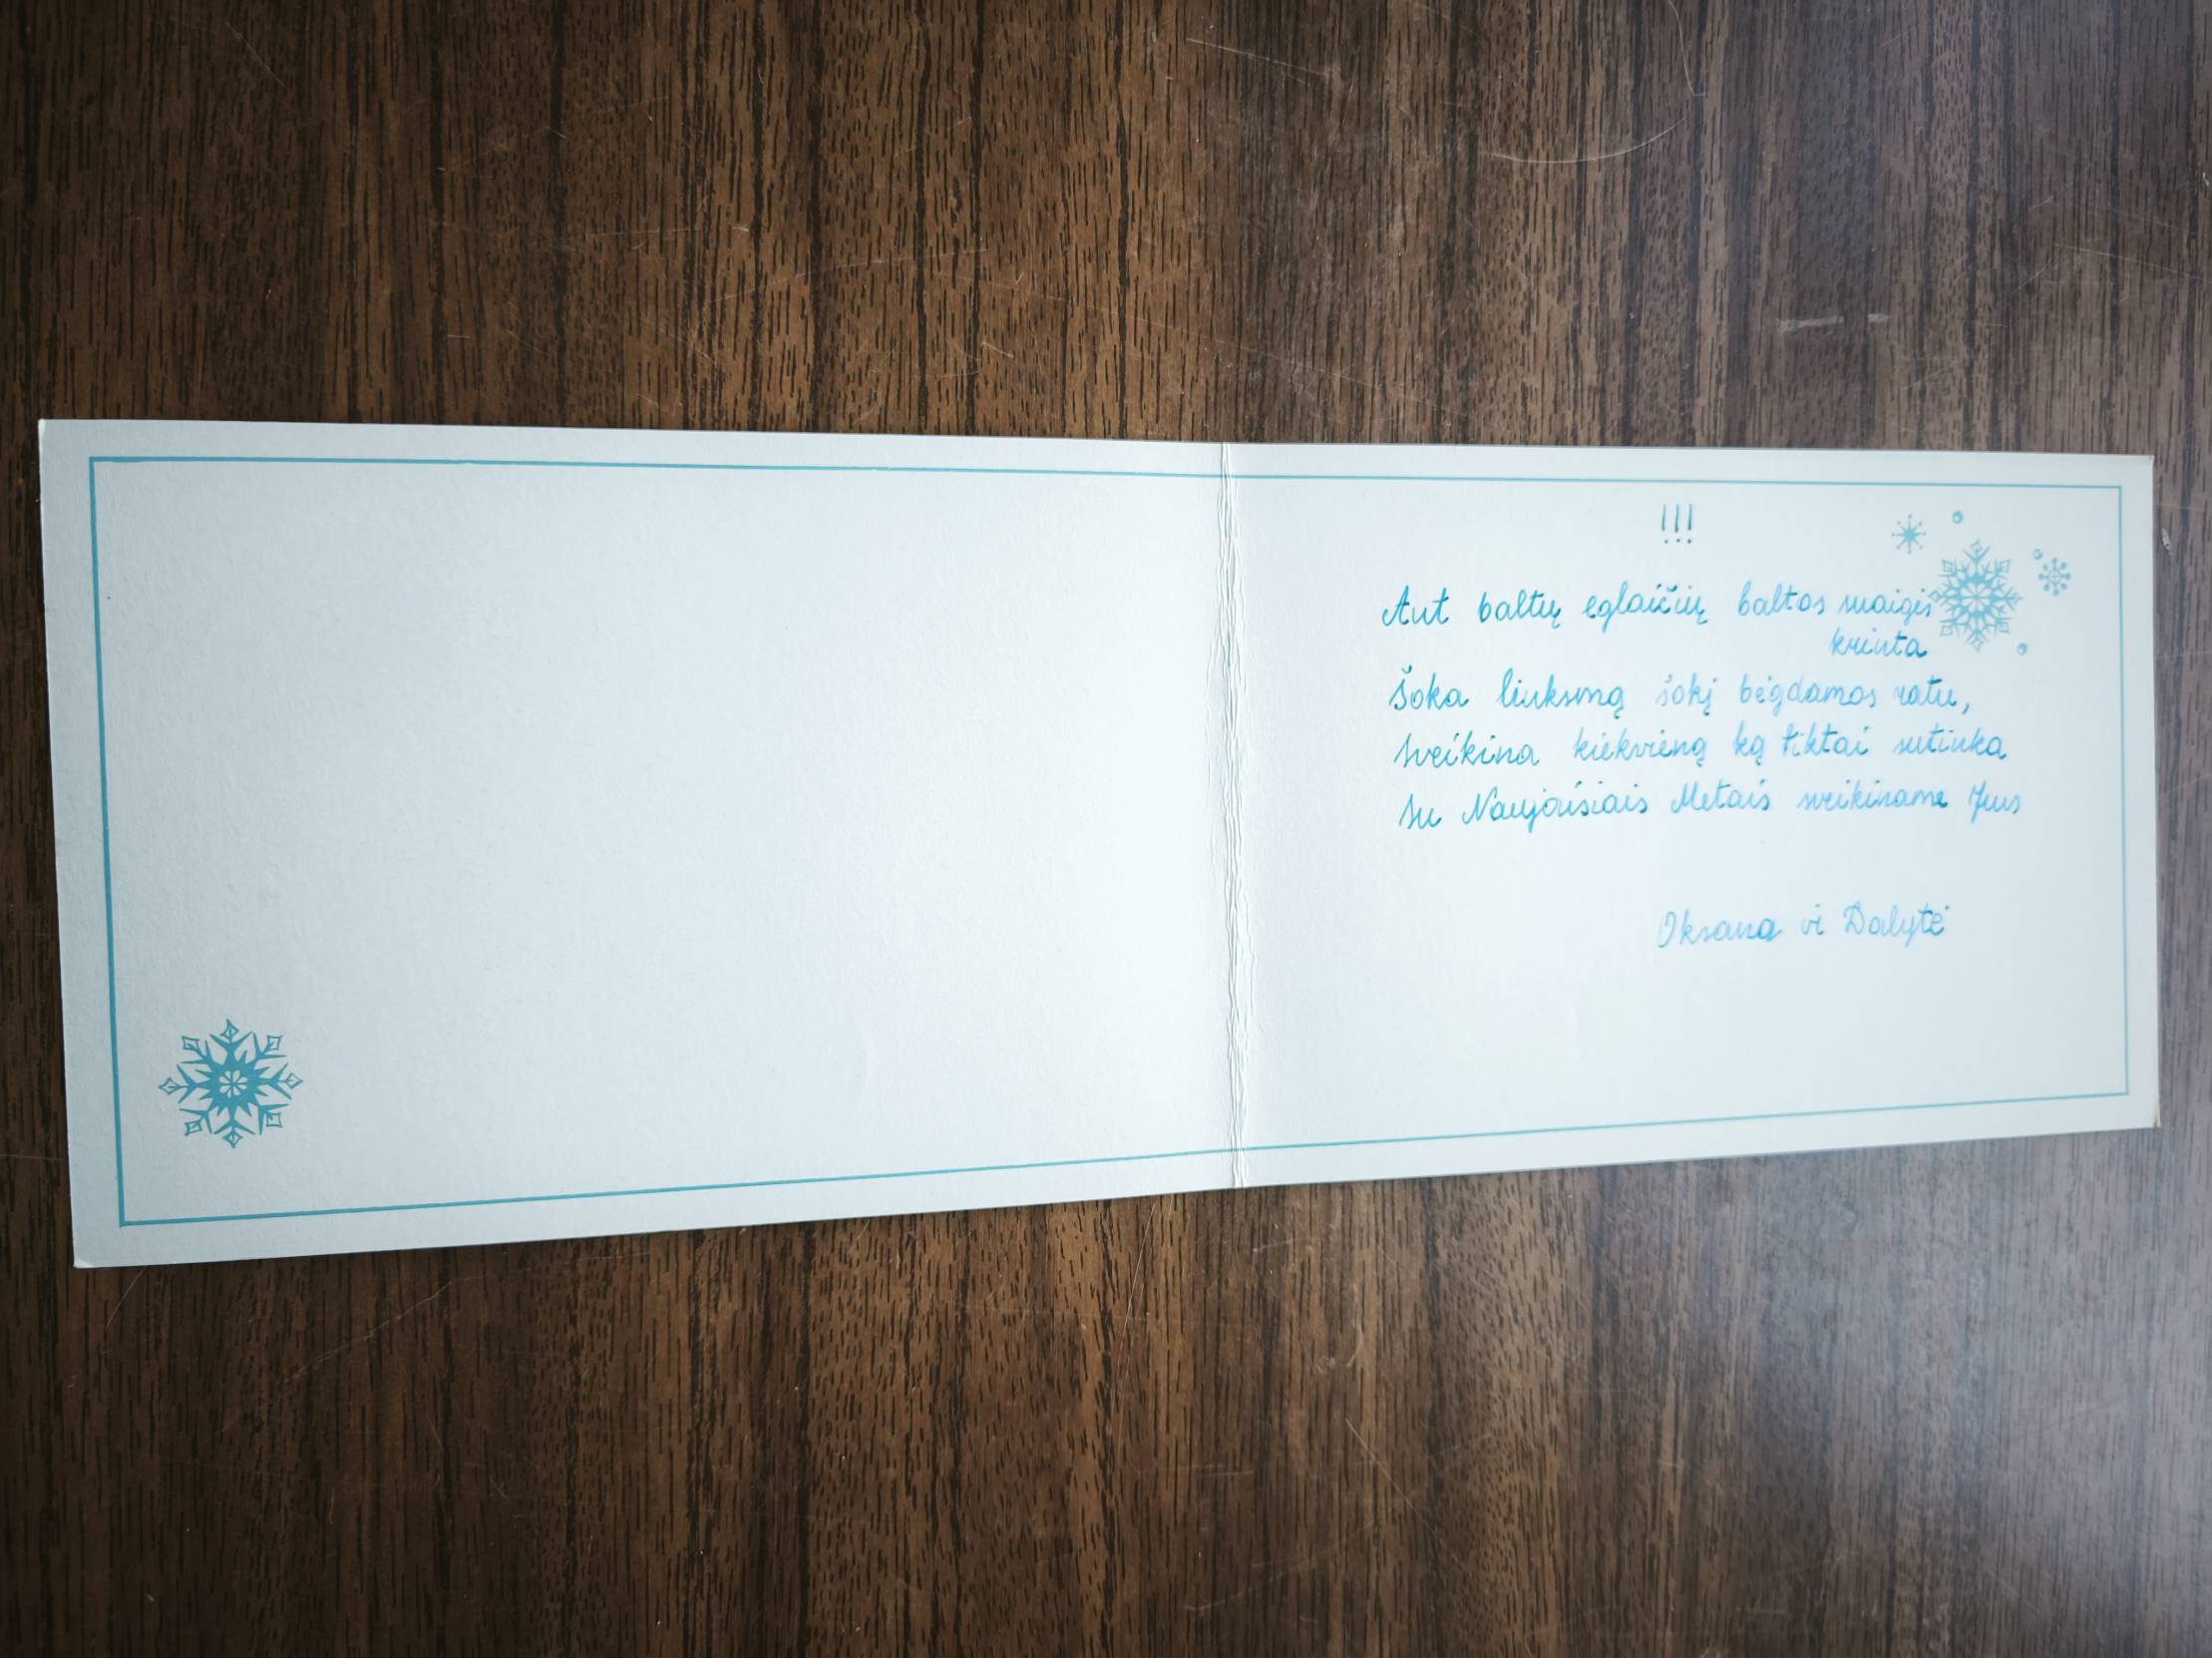 !!!
Ant baltų eglaičių baltos snaigės
krinta
Šoka linksmą šokį bėgdamos ratu,
sveikina kiekvieną ką tiktai sutinka
su Naujaisiais Metais sveikiname Jus
Oksana ir Dalytė